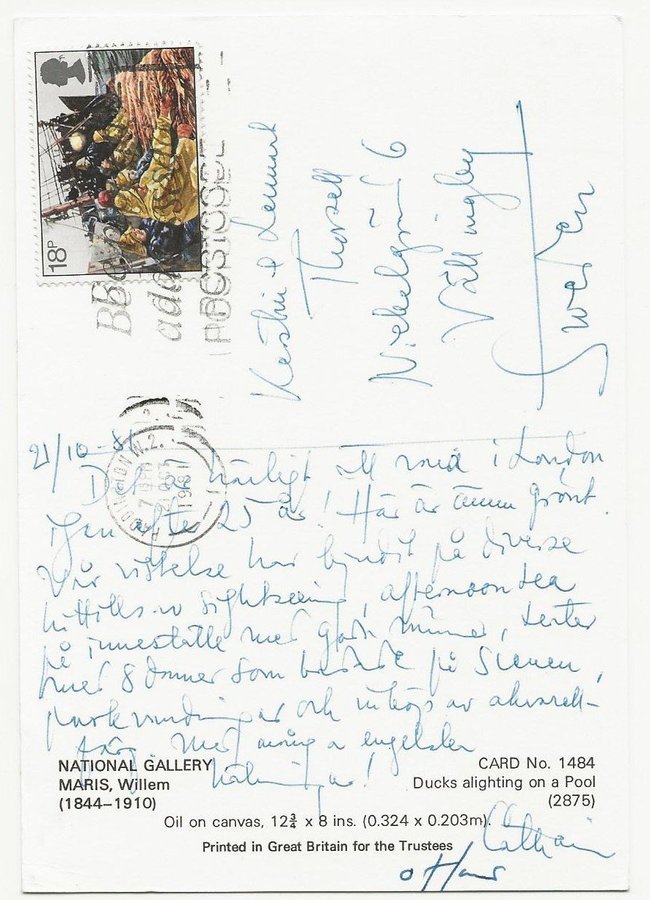 18P
POSTCODE
PADDINGTON W.2.
7 PM
OCT
1981
Kerstin & Lennart
Thorsell
Nickelgränd 6
Vällingby
Sweden
21/10-81
Det är härligt att vara i London
igen efter 25 år! Här är ännu grönt.
Vår vistelse har bjudit på diverse
hittills av sightseeing, afternoon tea
på inneställe med goda minnen, teater
med 8 damer som på scenen,
parkvandringar och inköp av akvarell-
färg. Med många engelska
hälsningar!
NATIONAL GALLERY
MARIS, Willem
(1844–1910)
CARD No. 1484
Ducks alighting on a Pool
(2875)
Oil on canvas, 12¾ x 8 ins. (0.324 x 0.203m).
Printed in Great Britain for the Trustees